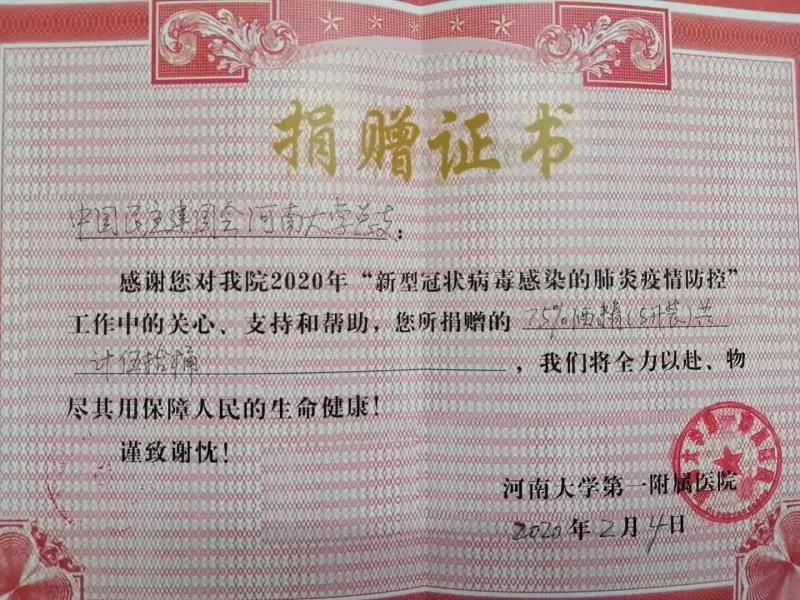 捐赠证书
中国民主建国会河南大学总支：
感谢您对我院2020年“新型冠状病毒感染的肺炎疫情防控”
工作中的关心、支持和帮助，您所捐赠的 75%酒精(5升装)共
计伍拾桶，我们将全力以赴、物
尽其用保障人民的生命健康！
谨致谢忱！
河南大学第一附属医院
2020年2月4日